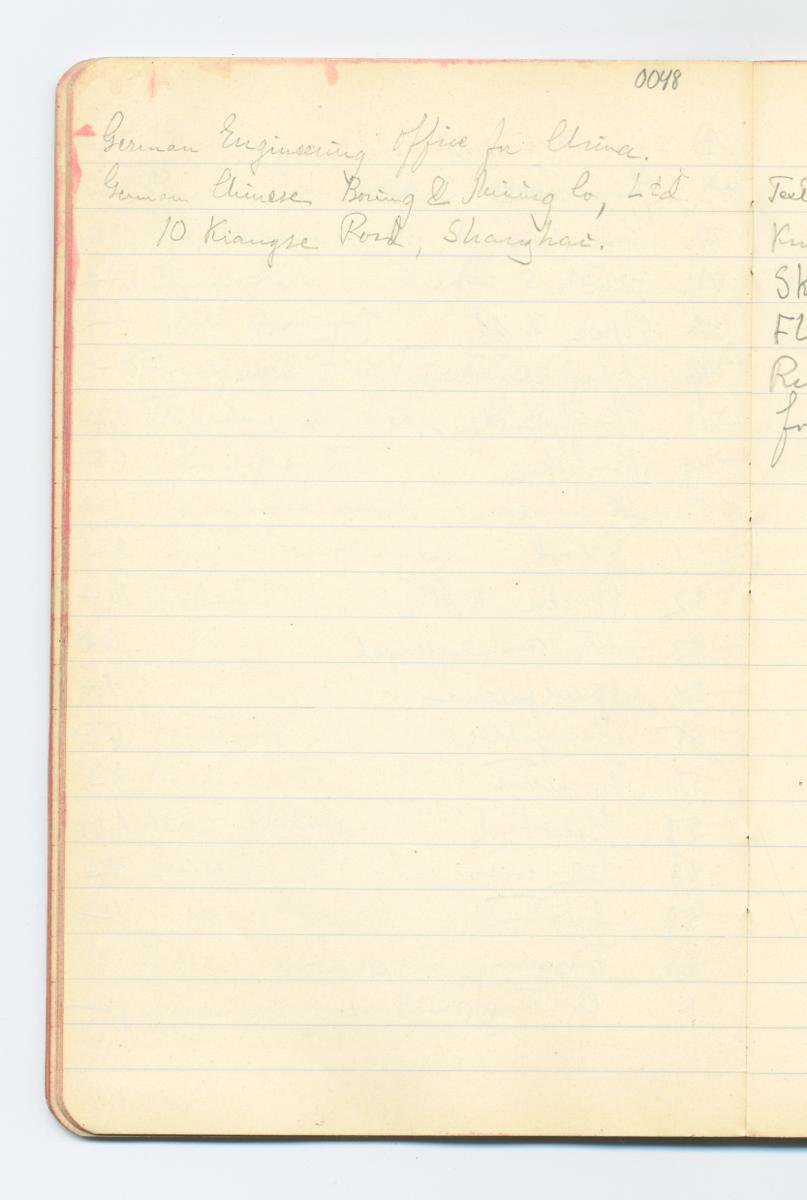 0048
German Engineering Office for China.
German Chinese Boring & Mining Co, Ltd
10 Kiangse Road, Shanghai.
Sk
FL
fo